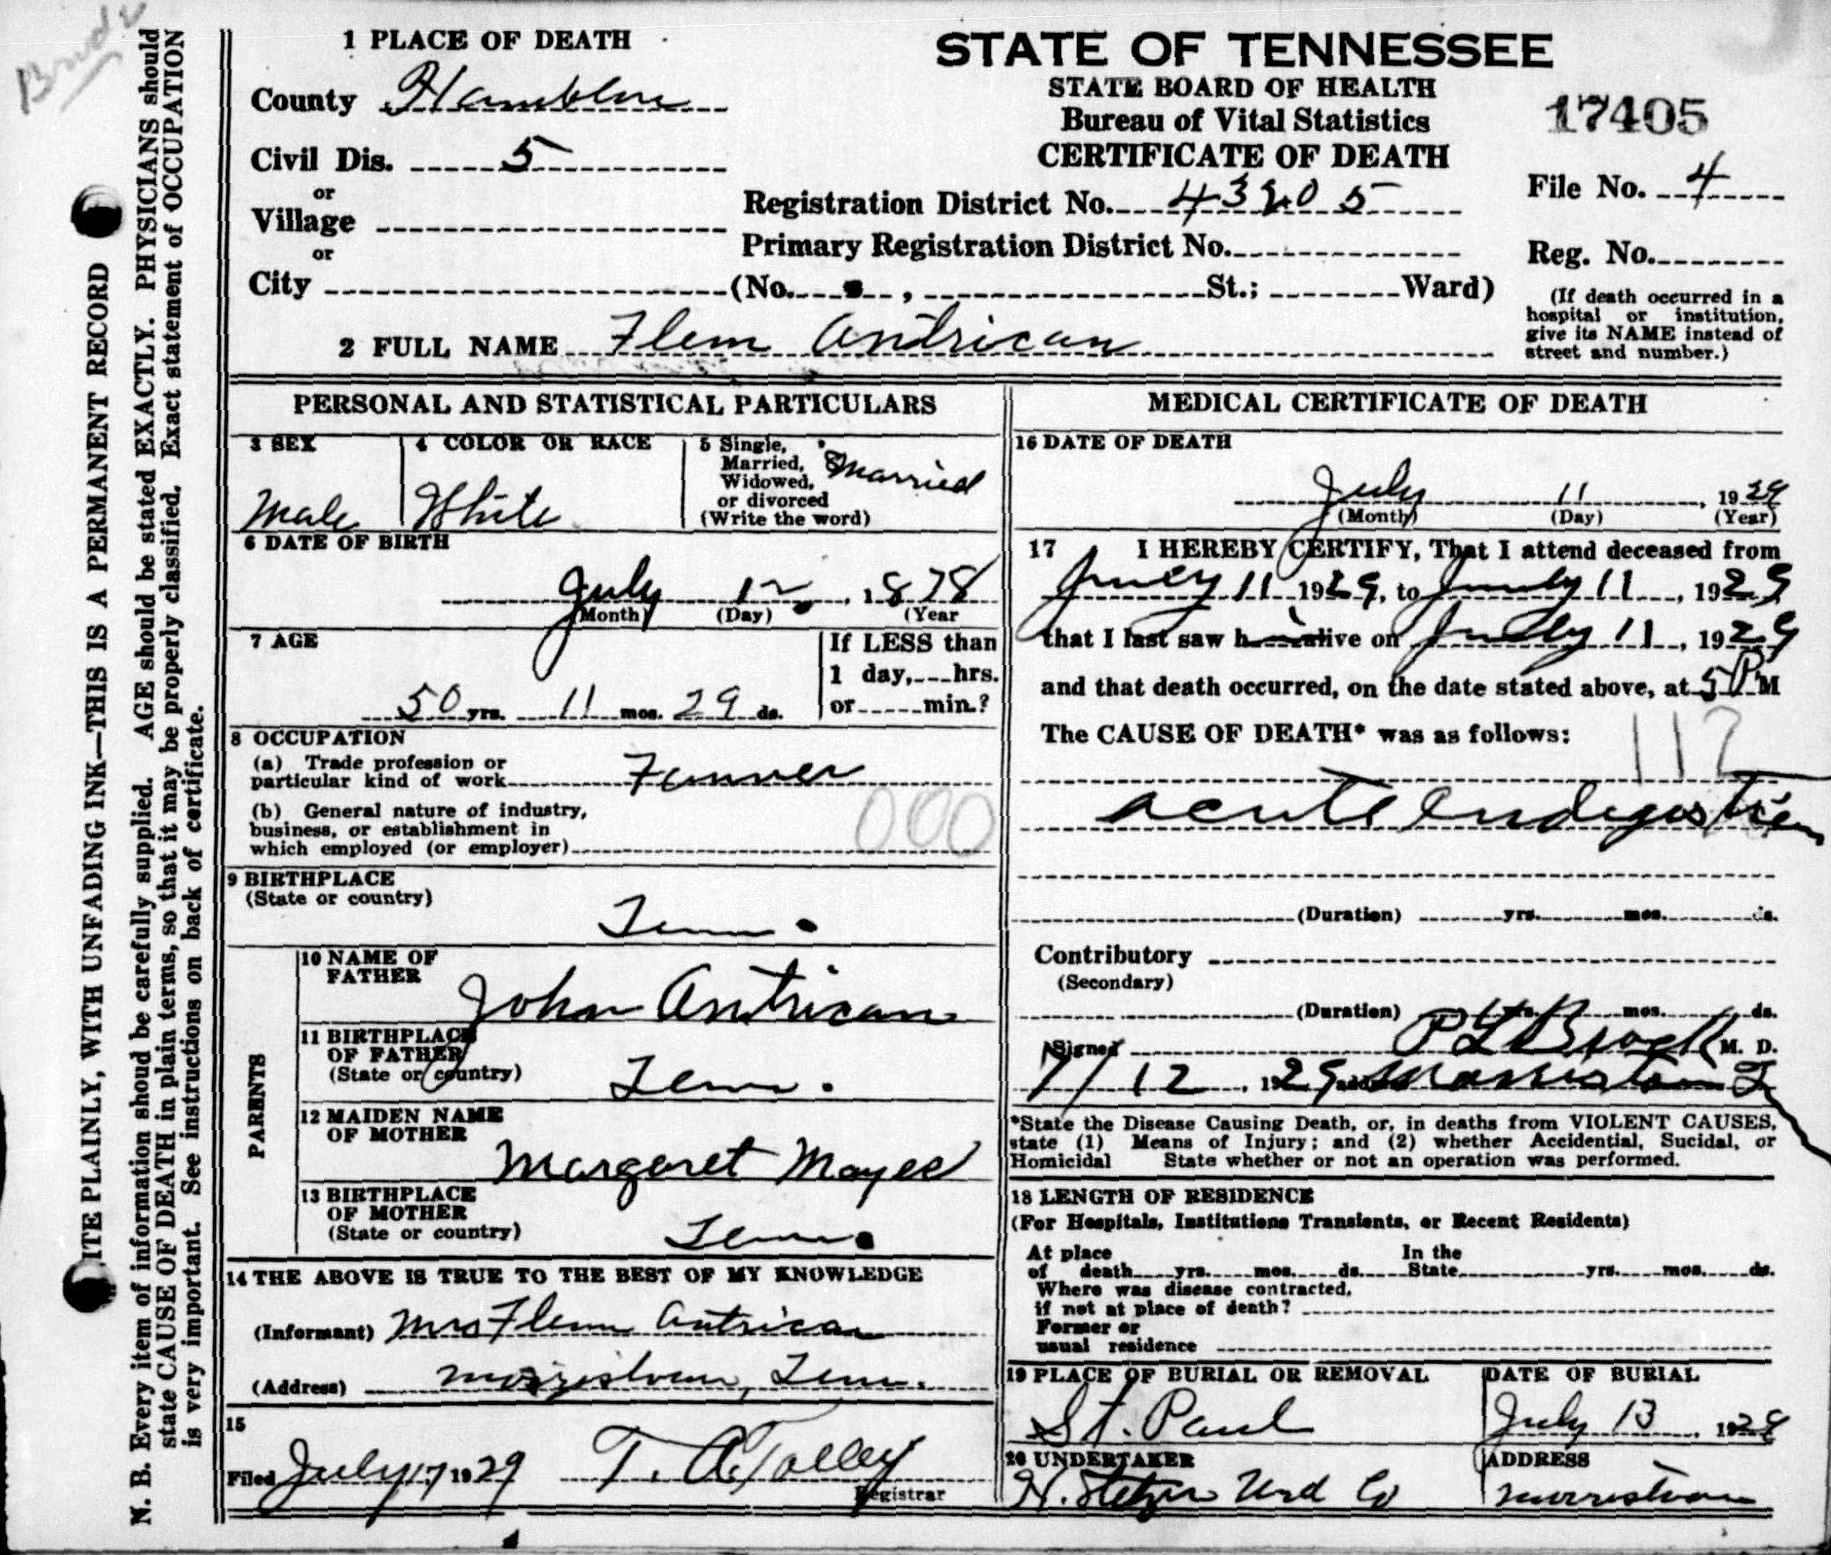 Brady
1 PLACE OF DEATH
County Hamblen
Civil Dis. 5
or
Village
or
City (No. , St.; Ward)
STATE OF TENNESSEE
STATE BOARD OF HEALTH
Bureau of Vital Statistics
CERTIFICATE OF DEATH
17405
Registration District No. 43205
File No. 4
Primary Registration District No.
Reg. No.
(If death occurred in a
hospital or institution,
give its NAME instead of
street and number.)
2 FULL NAME Flem Antrican
PERSONAL AND STATISTICAL PARTICULARS
3 SEX
Male
4 COLOR OR RACE
White
5 Single,
Married,
Widowed,
or divorced
(Write the word)
Married
6 DATE OF BIRTH
July 12, 1878
(Month) (Day) (Year
7 AGE
50 yrs. 11 mos. 29 ds.
If LESS than
1 day, hrs.
or min.?
8 OCCUPATION
(a) Trade profession or
particular kind of work Farmer
(b) General nature of industry,
business, or establishment in
which employed (or employer)
000
9 BIRTHPLACE
(State or country)
Tenn.
PARENTS
10 NAME OF
FATHER
John Antrican
11 BIRTHPLACE
OF FATHER
(State or country)
Tenn.
12 MAIDEN NAME
OF MOTHER
Margaret Mayes
13 BIRTHPLACE
OF MOTHER
(State or country)
Tenn.
14 THE ABOVE IS TRUE TO THE BEST OF MY KNOWLEDGE
(Informant) Mrs Flem Antrican
(Address) Morristown, Tenn.
15
Filed July 17 1929 T. A. Tolley
Registrar
MEDICAL CERTIFICATE OF DEATH
16 DATE OF DEATH
July 11, 1929
(Month) (Day) (Year)
17 I HEREBY CERTIFY, That I attend deceased from
July 11 1929, to July 11, 1929
that I last saw h alive on July 11, 1929
and that death occurred, on the date stated above, at 5 P M
The CAUSE OF DEATH* was as follows:
117
acute Indigestion
(Duration) yrs. mos. ds.
Contributory
(Secondary)
(Duration) yrs. mos. ds.
Signed P L Brock M. D.
7/12, 1929 add Morristown T
*State the Disease Causing Death, or, in deaths from VIOLENT CAUSES,
state (1) Means of Injury; and (2) whether Accidential, Sucidal, or
Homicidal State whether or not an operation was performed.
18 LENGTH OF RESIDENCE
(For Hospitals, Institutions Transients, or Recent Residents)
At place
of death yrs. mos. ds.
In the
State yrs. mos. ds.
Where was disease contracted,
if not at place of death?
Former or
usual residence
19 PLACE OF BURIAL OR REMOVAL
St. Paul
DATE OF BURIAL
July 13, 1929
20 UNDERTAKER
H. Stetzer Und Co
ADDRESS
Morristown
ITE PLAINLY, WITH UNFADING INK—THIS IS A PERMANENT RECORD
N. B. Every item of information should be carefully supplied. AGE should be stated EXACTLY. PHYSICIANS should
state CAUSE OF DEATH in plain terms, so that it may be properly classified. Exact statement of OCCUPATION
is very important. See instructions on back of certificate.